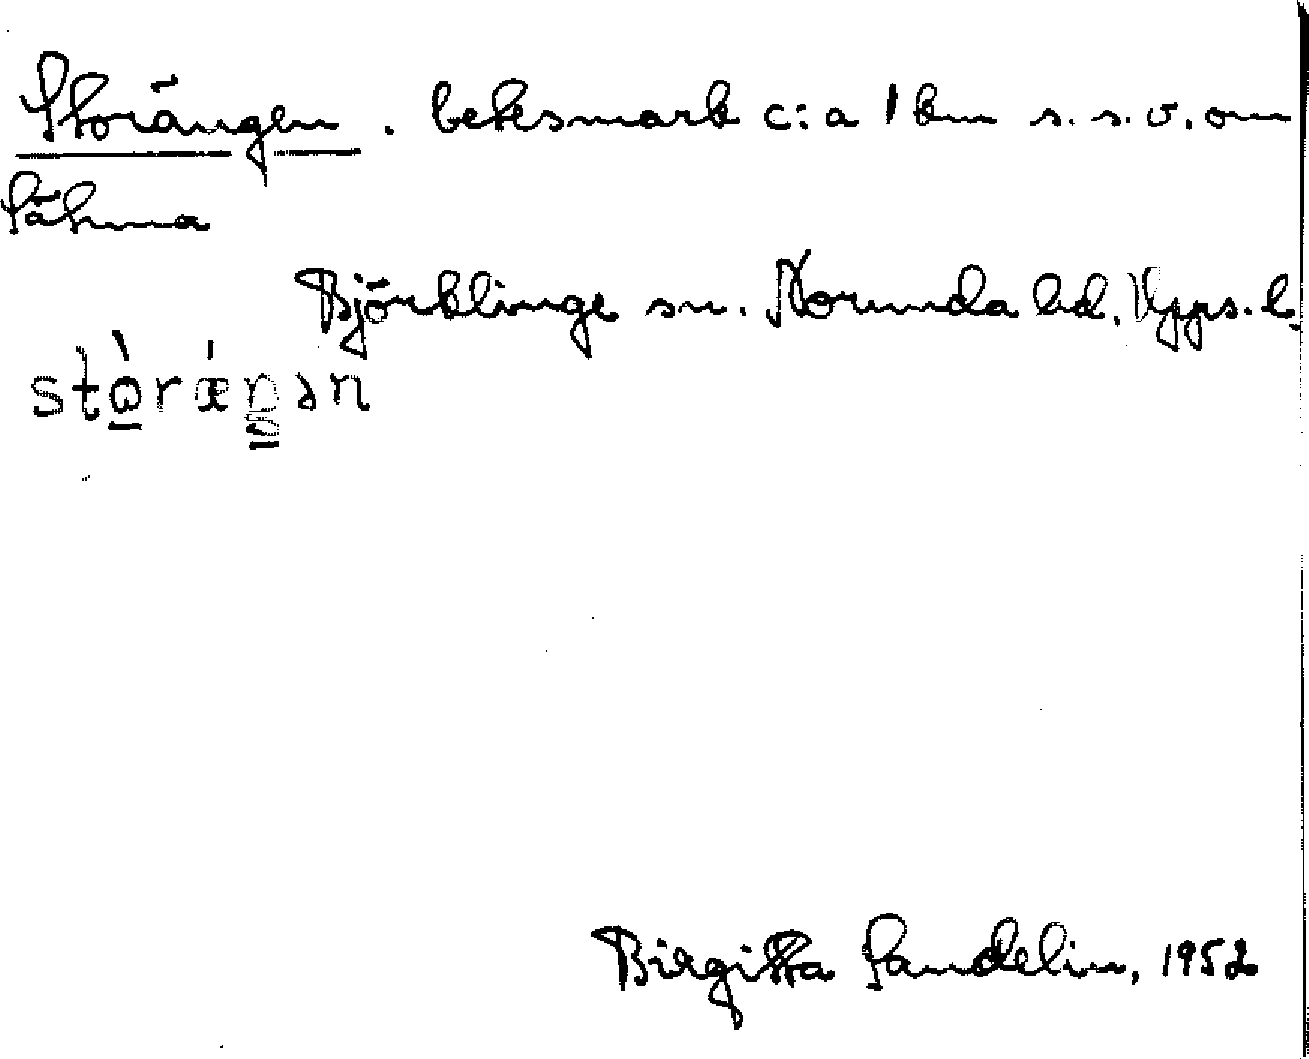 Storängen. betesmark c:a 1 km s.s.v. om
Sähma
Björklinge sn. Norunda hd. Upps. l.
stòrǽŋən
Birgitta Sandelin, 1952